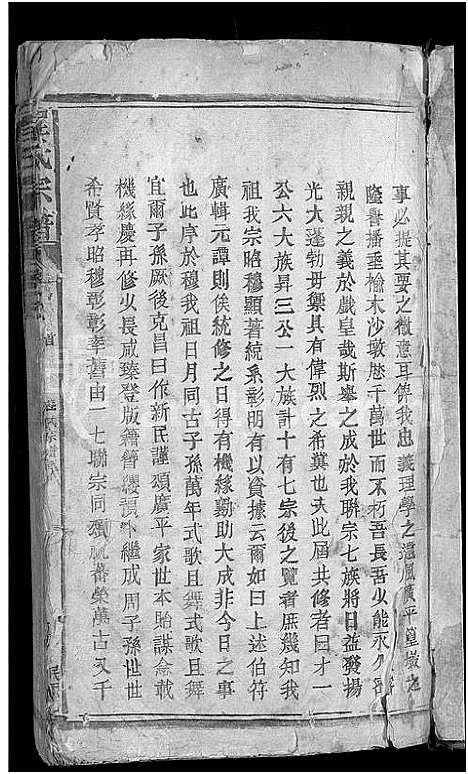 事必提其要之微意耳俾我忠義理學之遺風廣平
隆譽播垂榆木沙墩歷千萬世而不朽吾長吾少能永久
親親之義於戲皇哉斯舉之成於我聯宗七族將日益發揚
光大蓬勃毋禦具有偉烈之希冀也夫此屆共修者因才一
公六大族昇三公一大族計十有七宗後之覽者庶幾知我
祖我宗昭穆顯著統系彰明有以資據云爾如曰上述伯符
廣輯元譚則俟統修之日得有機緣勷助大成非今日之事
也此序於穆我祖日月同古子孫萬年式歌且舞式歌且舞
宜爾子孫厥後克昌曰作新民謹頌廣平家世本貽謀念載
機緣慶再修少長咸臻登版籍簪纓預卜繼成周子孫世世
希賢孝昭穆彰彰率舊由一七聯宗同頌祝蕃榮萬古又千
氏宗譜
首